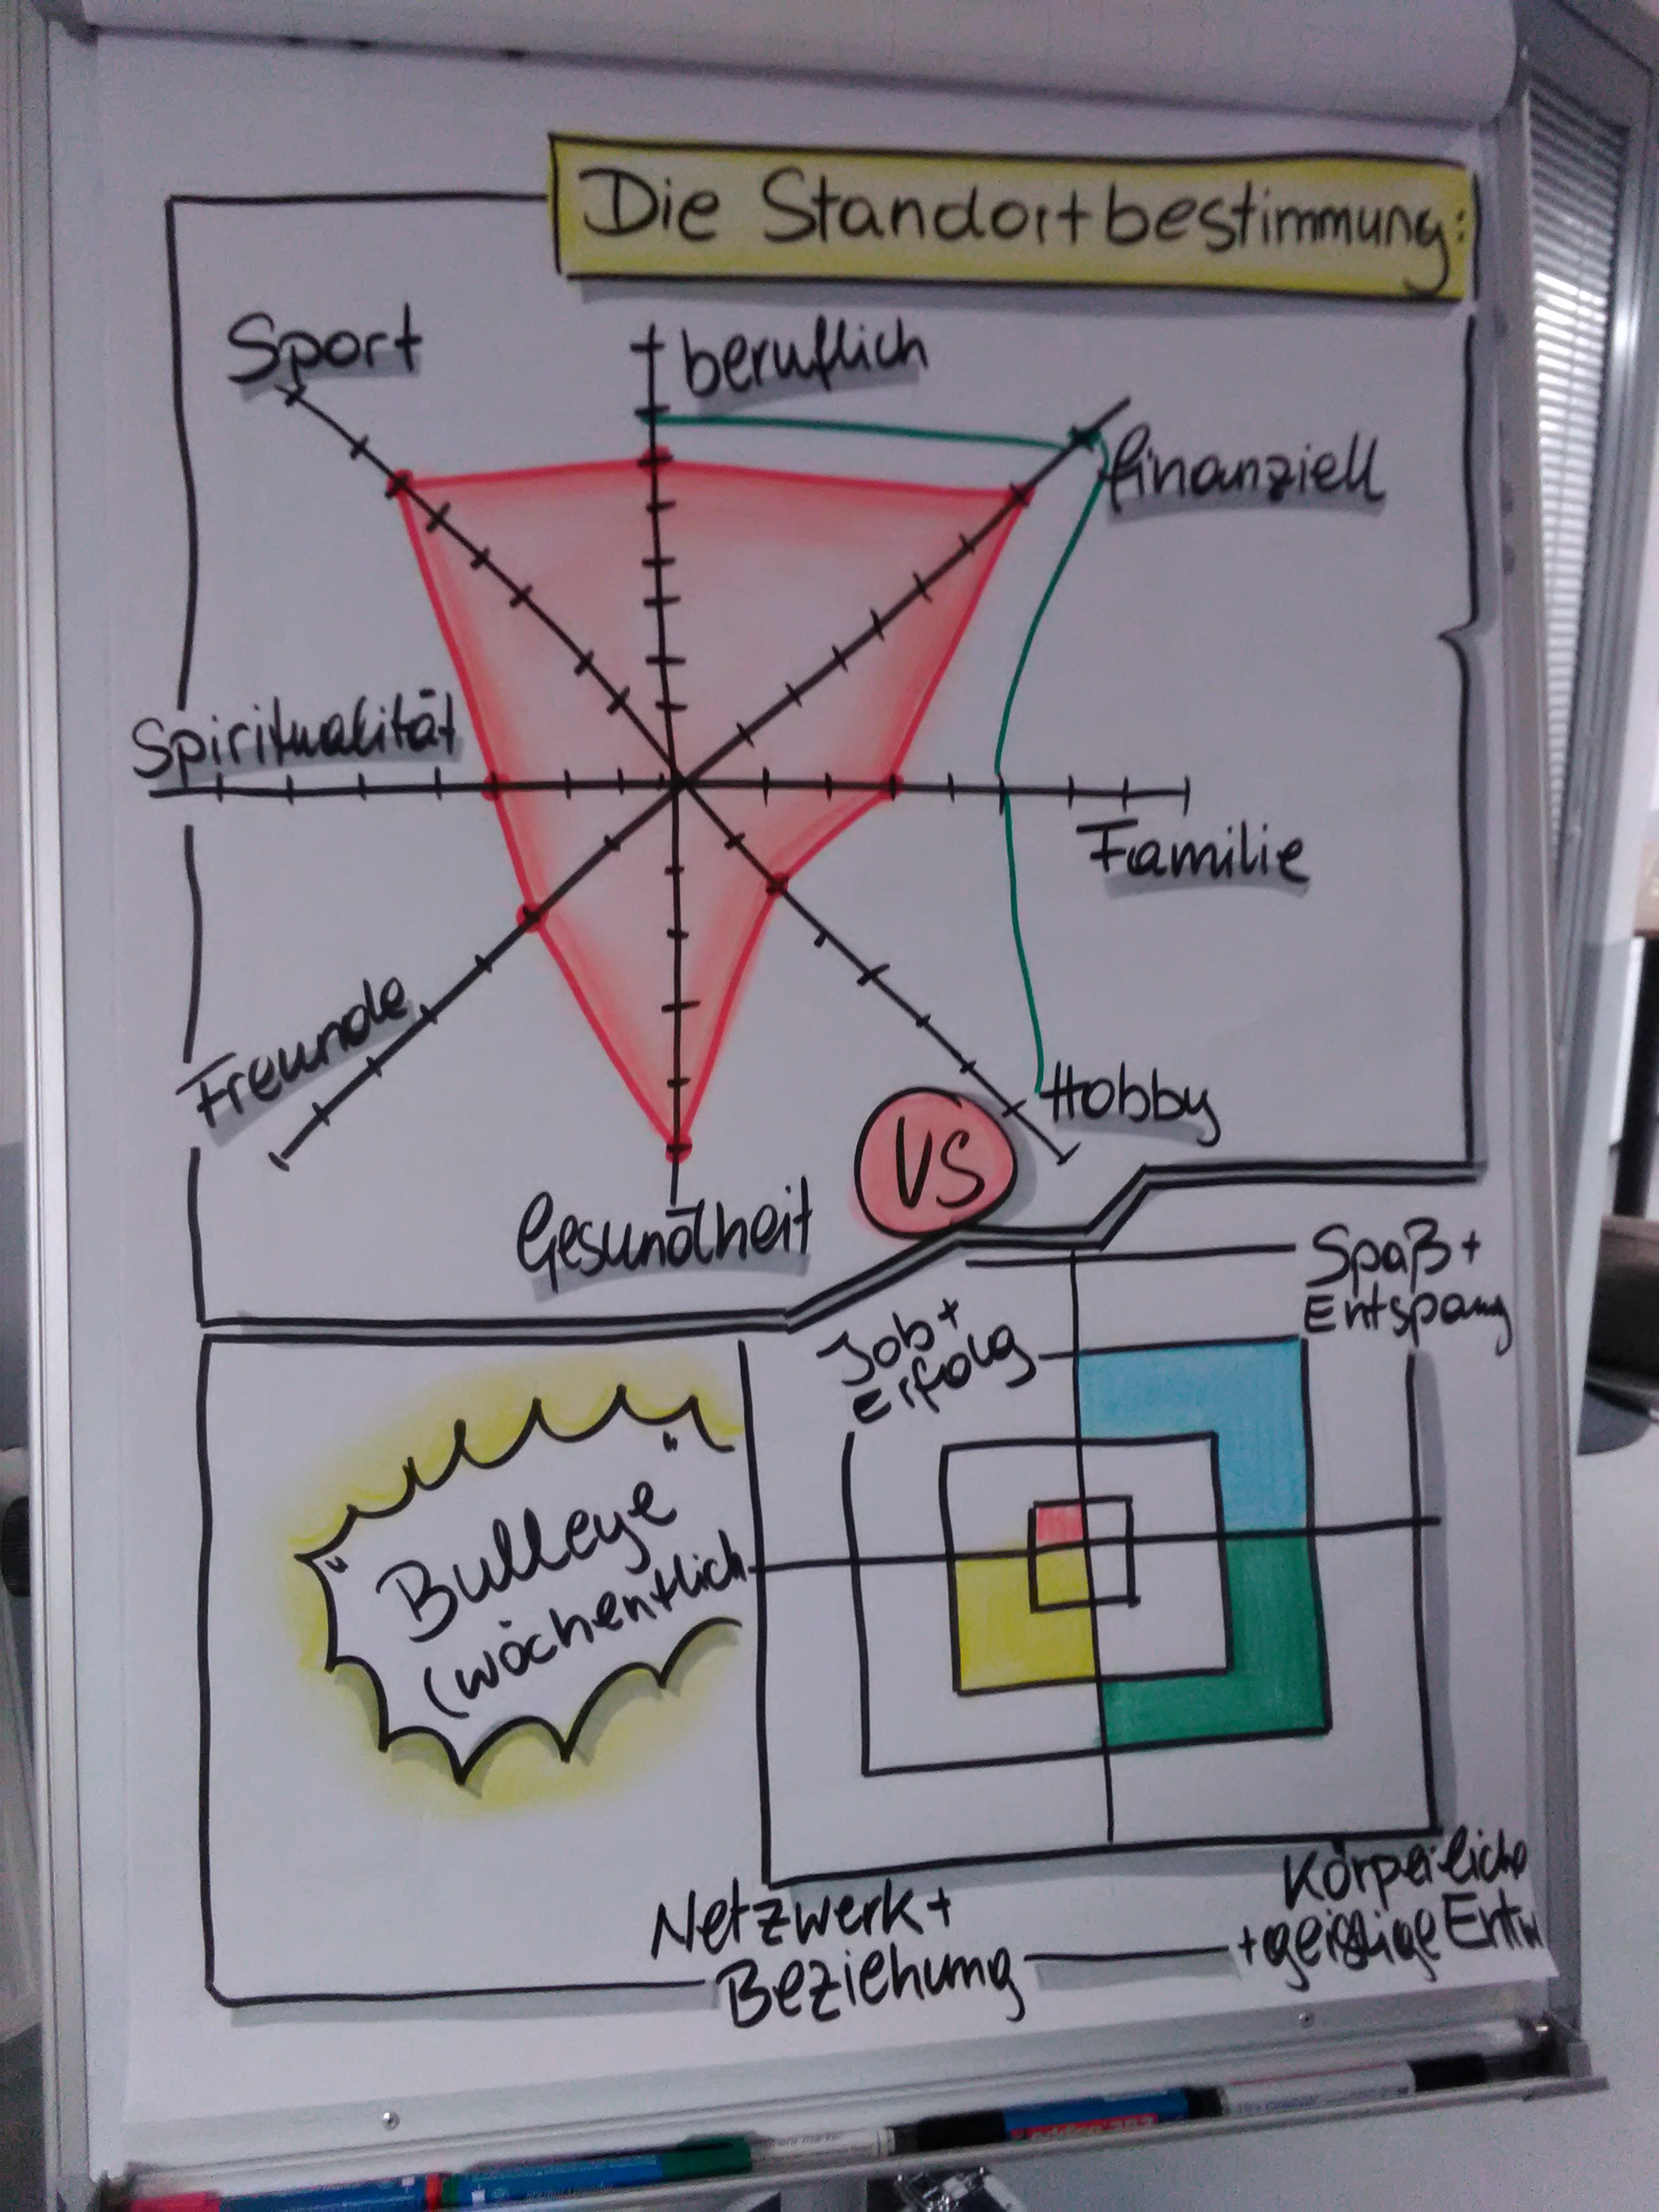 Die Standortbestimmung:
Sport
beruflich
finanziell
Spiritualität
Familie
Freunde
Hobby
Gesundheit
VS
Spaß +
Entspang
Job +
Erfolg
"Bulleye"
(wöchentlich
Netzwerk +
Beziehung
Körperliche
+ geistige Entw